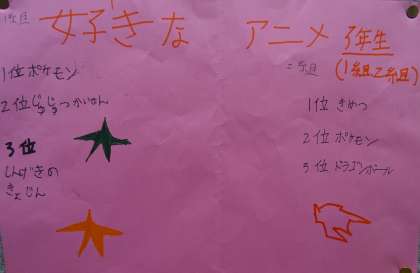 好きな アニメ 3年生
(1組、2組)
1組目
1位 ポケモン
2位 じゅじゅつかいせん
3位
しんげきの
きょじん
2組目
1位 きめつ
2位 ポケモン
3位 ドラゴンボール